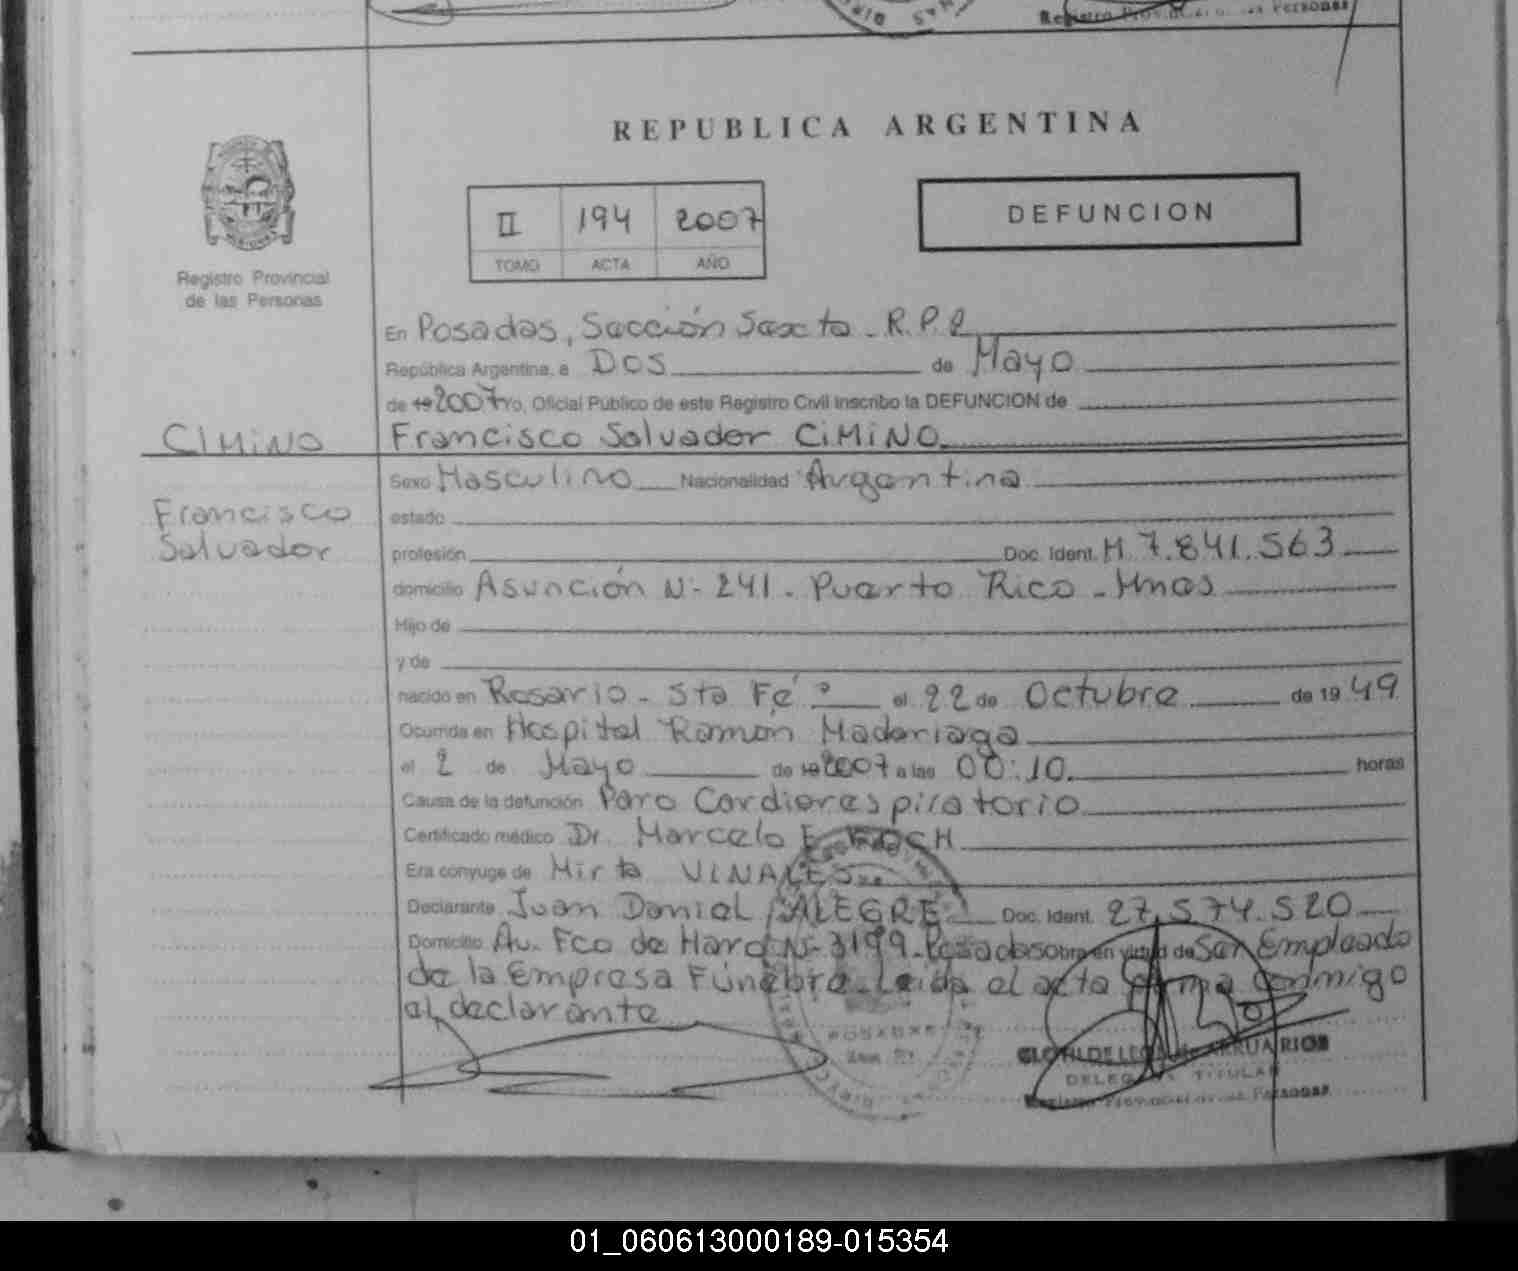 Registro Provincial de las Personas
REPUBLICA ARGENTINA
II 194 2007
TOMO ACTA AÑO
DEFUNCION
Registro Provincial
de las Personas
En Posadas, Sección Sexta - R.P.P
República Argentina, a DOS de Mayo
de 19 2007 yo, Oficial Público de este Registro Civil inscribo la DEFUNCION de
CIMINO Francisco Salvador CIMINO
Sexo Masculino Nacionalidad Argentina
Francisco
estado
Salvador
profesión Doc. Ident. M 7.841.563
domicilio Asunción Nº 241 - Puerto Rico - Mnes
Hijo de
y de
nacido en Rosario - Sta Fé el 22 de Octubre de 19 49
Ocurrida en Hospital Ramón Madariaga
el 2 de Mayo de 19 2007 a las 00:10 horas
Causa de la defunción Paro Cardiorespiratorio
Certificado médico Dr. Marcelo E. KOCH
Era conyuge de Mirta VINALES
Declarante Juan Daniel ALEGRE Doc. Ident. 27.574.520
Domicilio Av. Fco de Haro Nº 3199 - Posadas Obra en virtud de Ser Empleado
de la Empresa Fúnebre - Leida el acta firma conmigo
el declarante
POSADAS
DELEGADA TITULAR
Registro Provincial de las Personas
01_060613000189-015354